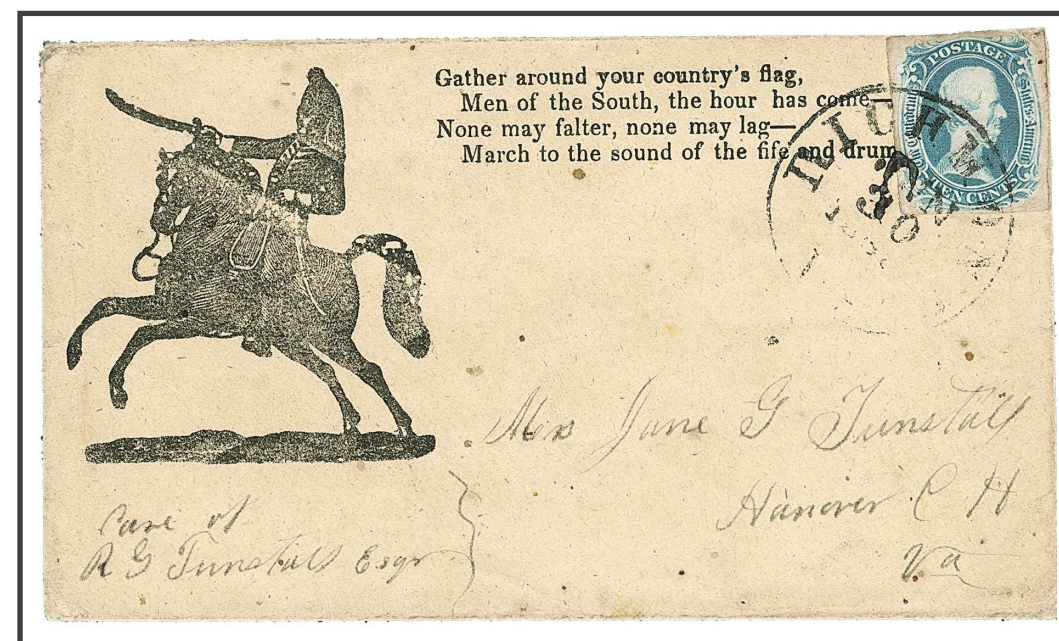 Gather around your country's flag,
Men of the South, the hour has come—
None may falter, none may lag—
March to the sound of the fife and drum
POSTAGE
The Confederate States of America
TEN CENTS
RICHMOND
30
Mrs Jane G Tunstall
Hanover C H
Va
Care of
R G Tunstall Esqr